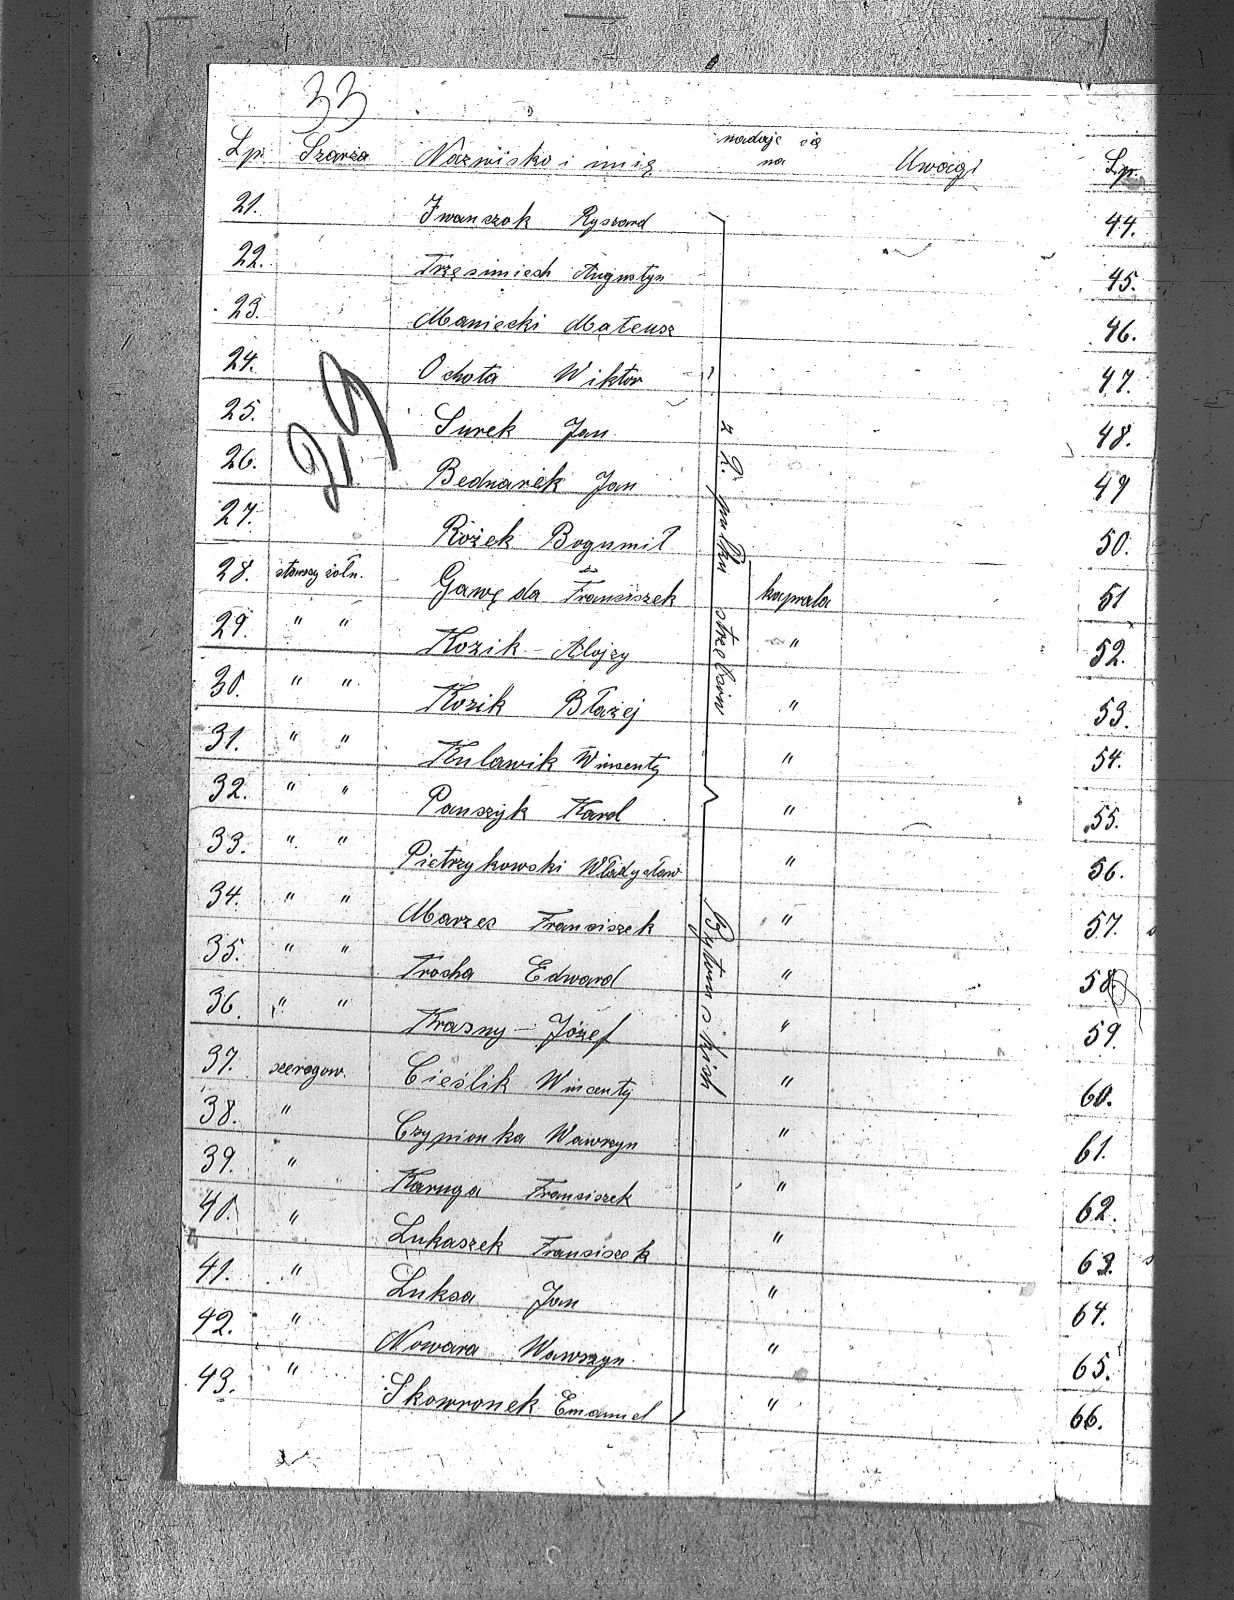 33
Lp. Szarża Nazwisko i imię nadaje się na Uwagi Lp.
21. Iwanczok Ryszard 44.
22. Trzęsimiech Augustyn 45.
23. Maniecki Mateusz 46.
24. Ochota Wiktor 47.
29
25. Surek Jan 48.
26. Bednarek Jan 49
27. Rożek Bogumił 50.
28. starszy żołn. Gawęda Franciszek kaprala 51
29. " " Kozik - Alojzy " 52.
30. " " Kozik Błażej " 53.
31. " " Kulawik Wincenty " 54.
32. " " Panszyk Karol " 55.
33. " " Pietrzykowski Władysław " 56.
34. " " Marzec Franciszek " 57.
35. " " Trocha Edward " 58.
36. " " Krasny - Józef " 59.
37. szeregow. Cieślik Wincenty " 60.
38. " Czypionka Wawrzyn " 61.
39. " Karuga Franciszek " 62.
40. " Lukaszek Franciszek " 63.
41. " Luksa Jan " 64.
42. " Nowara Wawrzyn " 65.
43. " Skowronek Emanuel " 66.
z R. pułku strzelców
Bytomskich